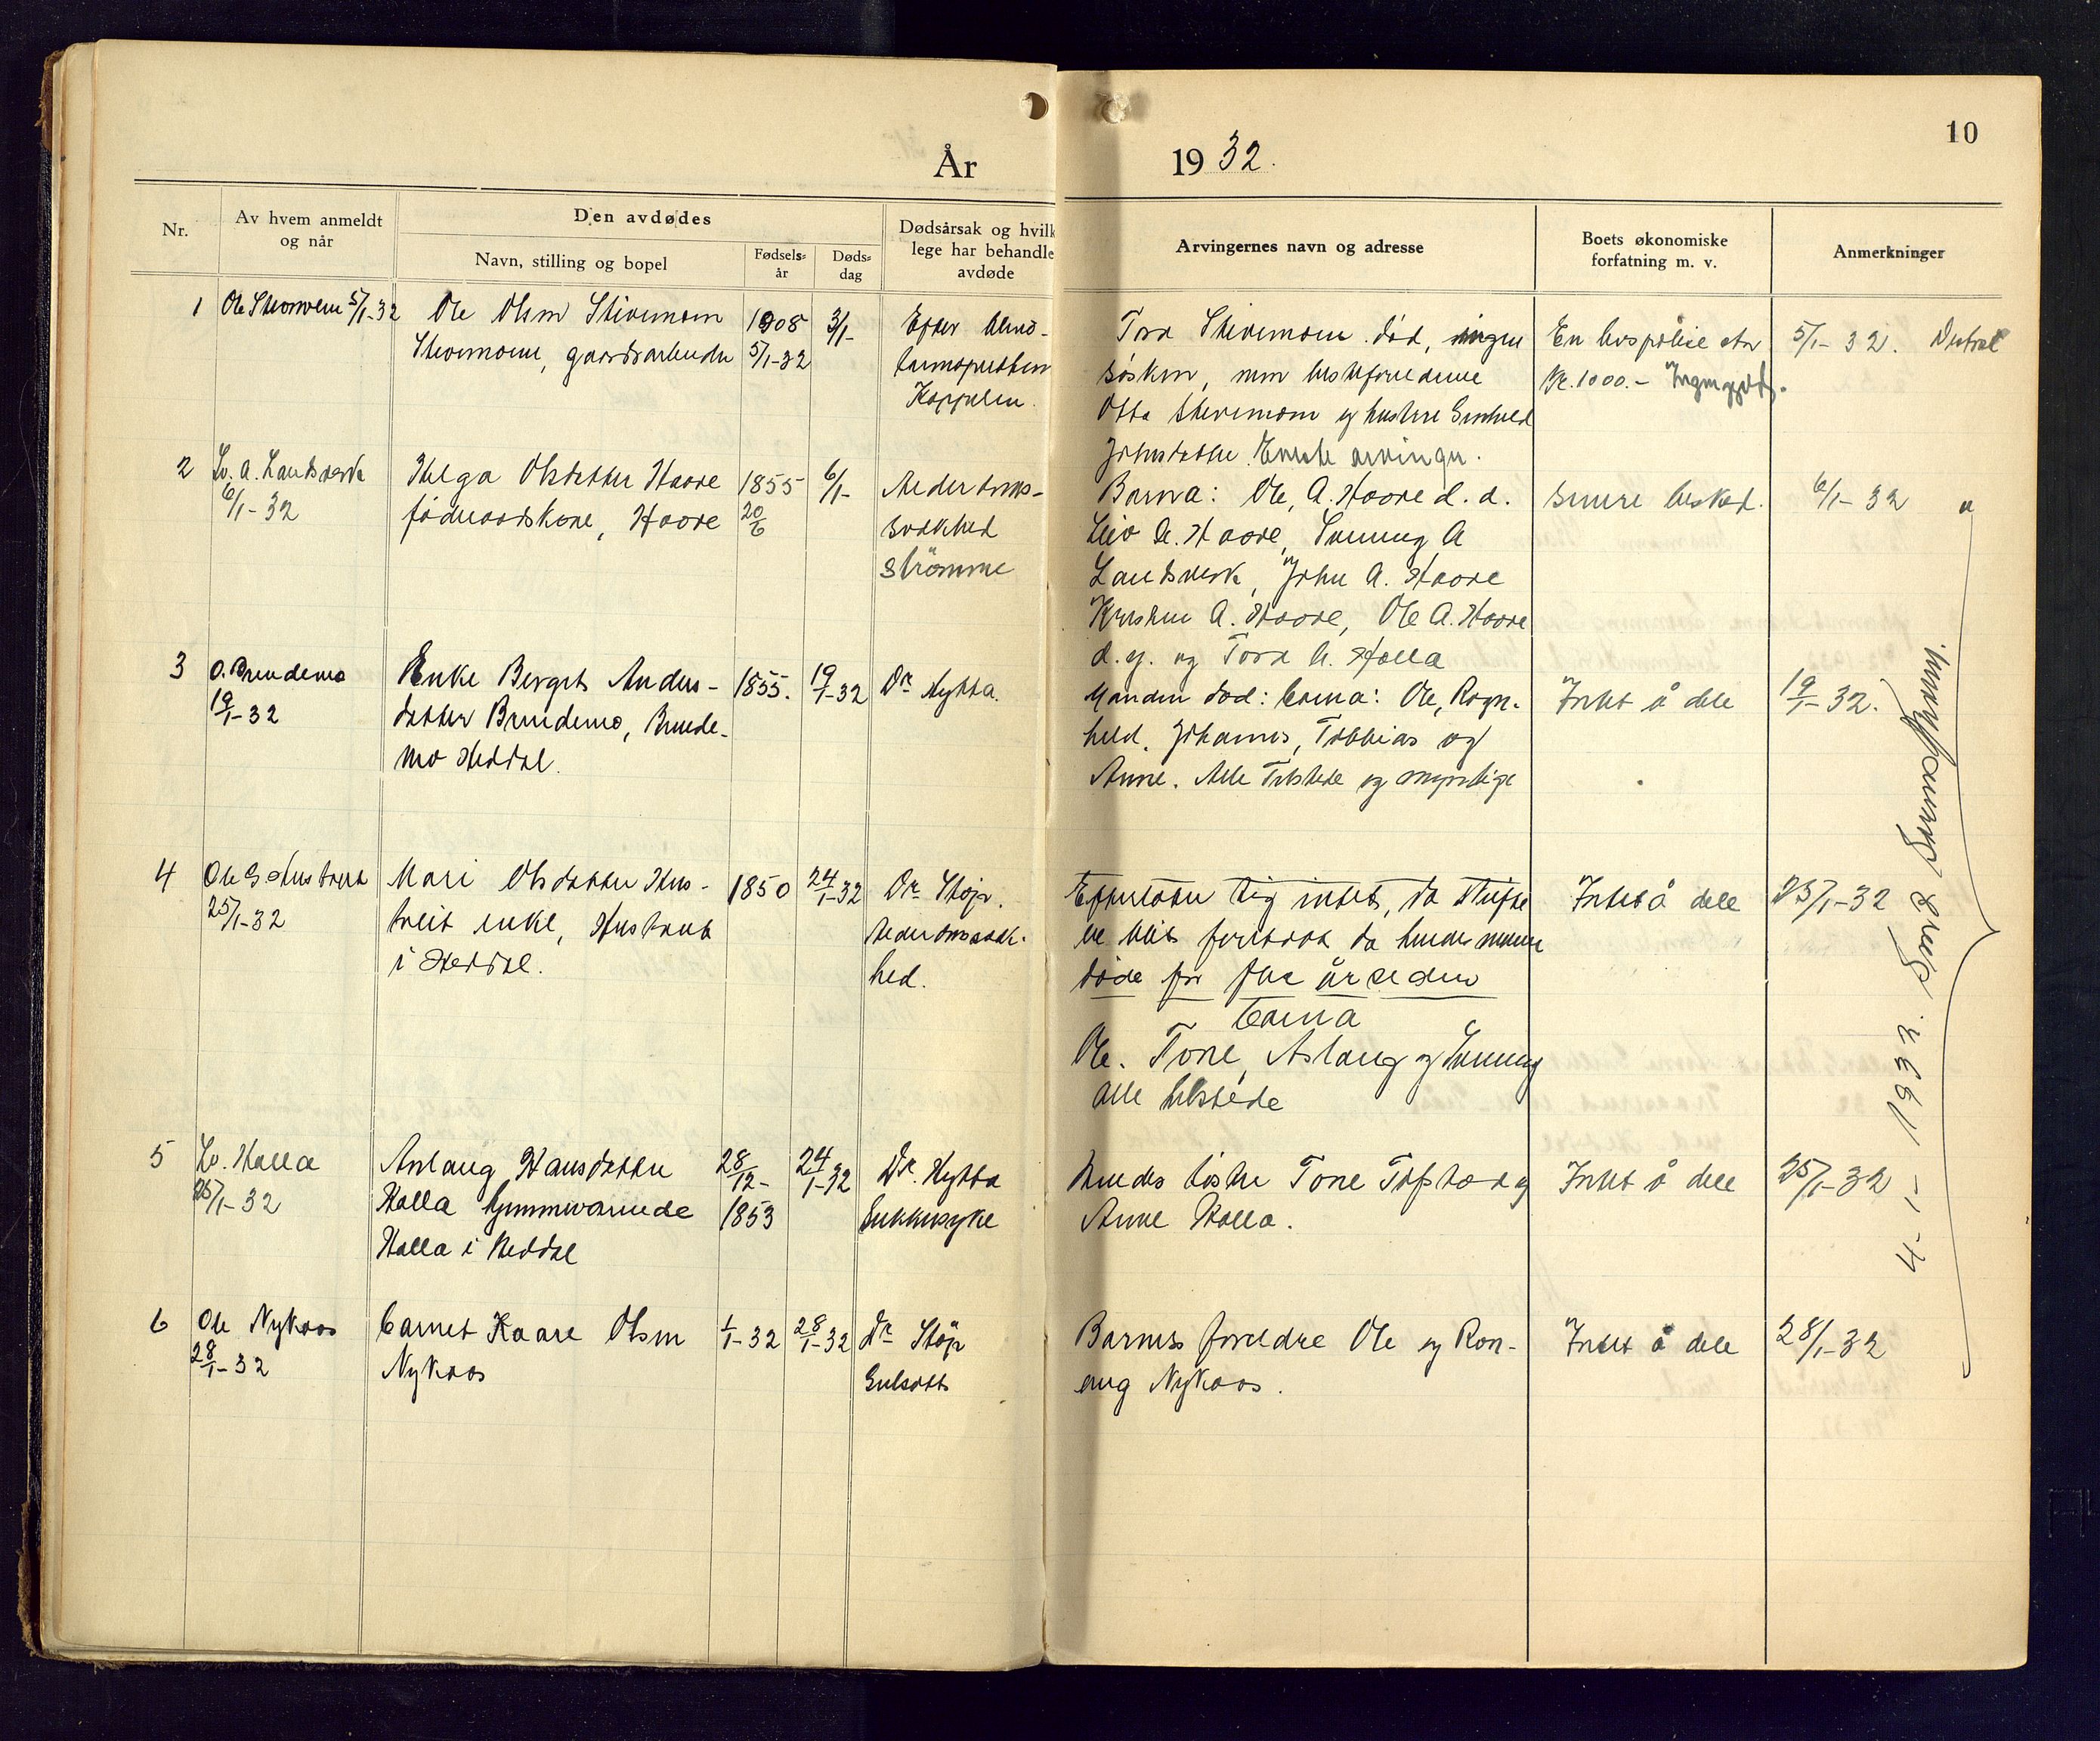 10
År 1932.
Nr.
Av hvem anmeldt
og når
Den avdødes
Navn, stilling og bopel
Fødsels-
år
Døds-
dag
Dødsårsak og hvilk
lege har behandle
avdøde
Arvingernes navn og adresse
Boets økonomiske
forfatning m. v.
Anmerkninger
1
Ole 5/1-32
Ole Olsen
gaardsarbeider
1908
5/1-32
3/1-
Efter blind-
Tov død, ingen
søsken, men
og hustru
Johnsdatter. Eneste arvinger.
En livspolise stor
kr. 1000.- Ingen gjeld.
5/1-32.
2
Lv. A. Landsverk
6/1-32
Helga Olsdatter Haave
føderaadskone, Haave
1855
20/6
6/1-
Alderdoms-
svakhed
Strömme
Barna: Ole, A. Haave d. e.
Leiv A. Haave, Gunnug A
Landsverk, John A. Haave
Kristen A. Haave, Ole A. Haave
d. y. og Tora A. Holla
senere besked.
6/1-32 "
3
O. Brendemo
19/1-32
Enke Bergit Anders-
datter Brendemo, Brende-
mo Heddal.
1855.
19/1-32
Dr. Hytta.
Manden død: barna: Ole, Ragn-
hild, Johannes, Tobbias og
Anne. Alle Tilstede og myndige
Intet å dele
19/1-32.
4
Ole G
25/1-32
Mari Olsdatter Hus-
enke,
i Heddal.
1850
24/1-32
Dr. Støp.
Alderdomssvak-
hed.
Efterlater sig intet, da skifte
er blit foretat da hendes mann
døde for flere år siden
barna
Ole. Tone, Aslaug og Gunnug
alle tilstede
Intet å dele
25/1-32
5
Lv. Holla
25/1-32
Aslaug Hansdatter
Holla hjemmeværende
Holla i Heddal
28/12-
1853
24/1-32
Dr. Hytta
Sukkersyke
hendes søstre Tone og
Anne Holla.
Intet å dele
25/1-32
6
Ole Nykaas
28/1-32
barnet Kaare Olsen
Nykaas
1/1-32
28/1-32
Dr. Støp
Gulsott
Barnets foreldre Ole og Ron-
aug Nykaas.
Intet å dele
28/1-32
4-1-1932. Send